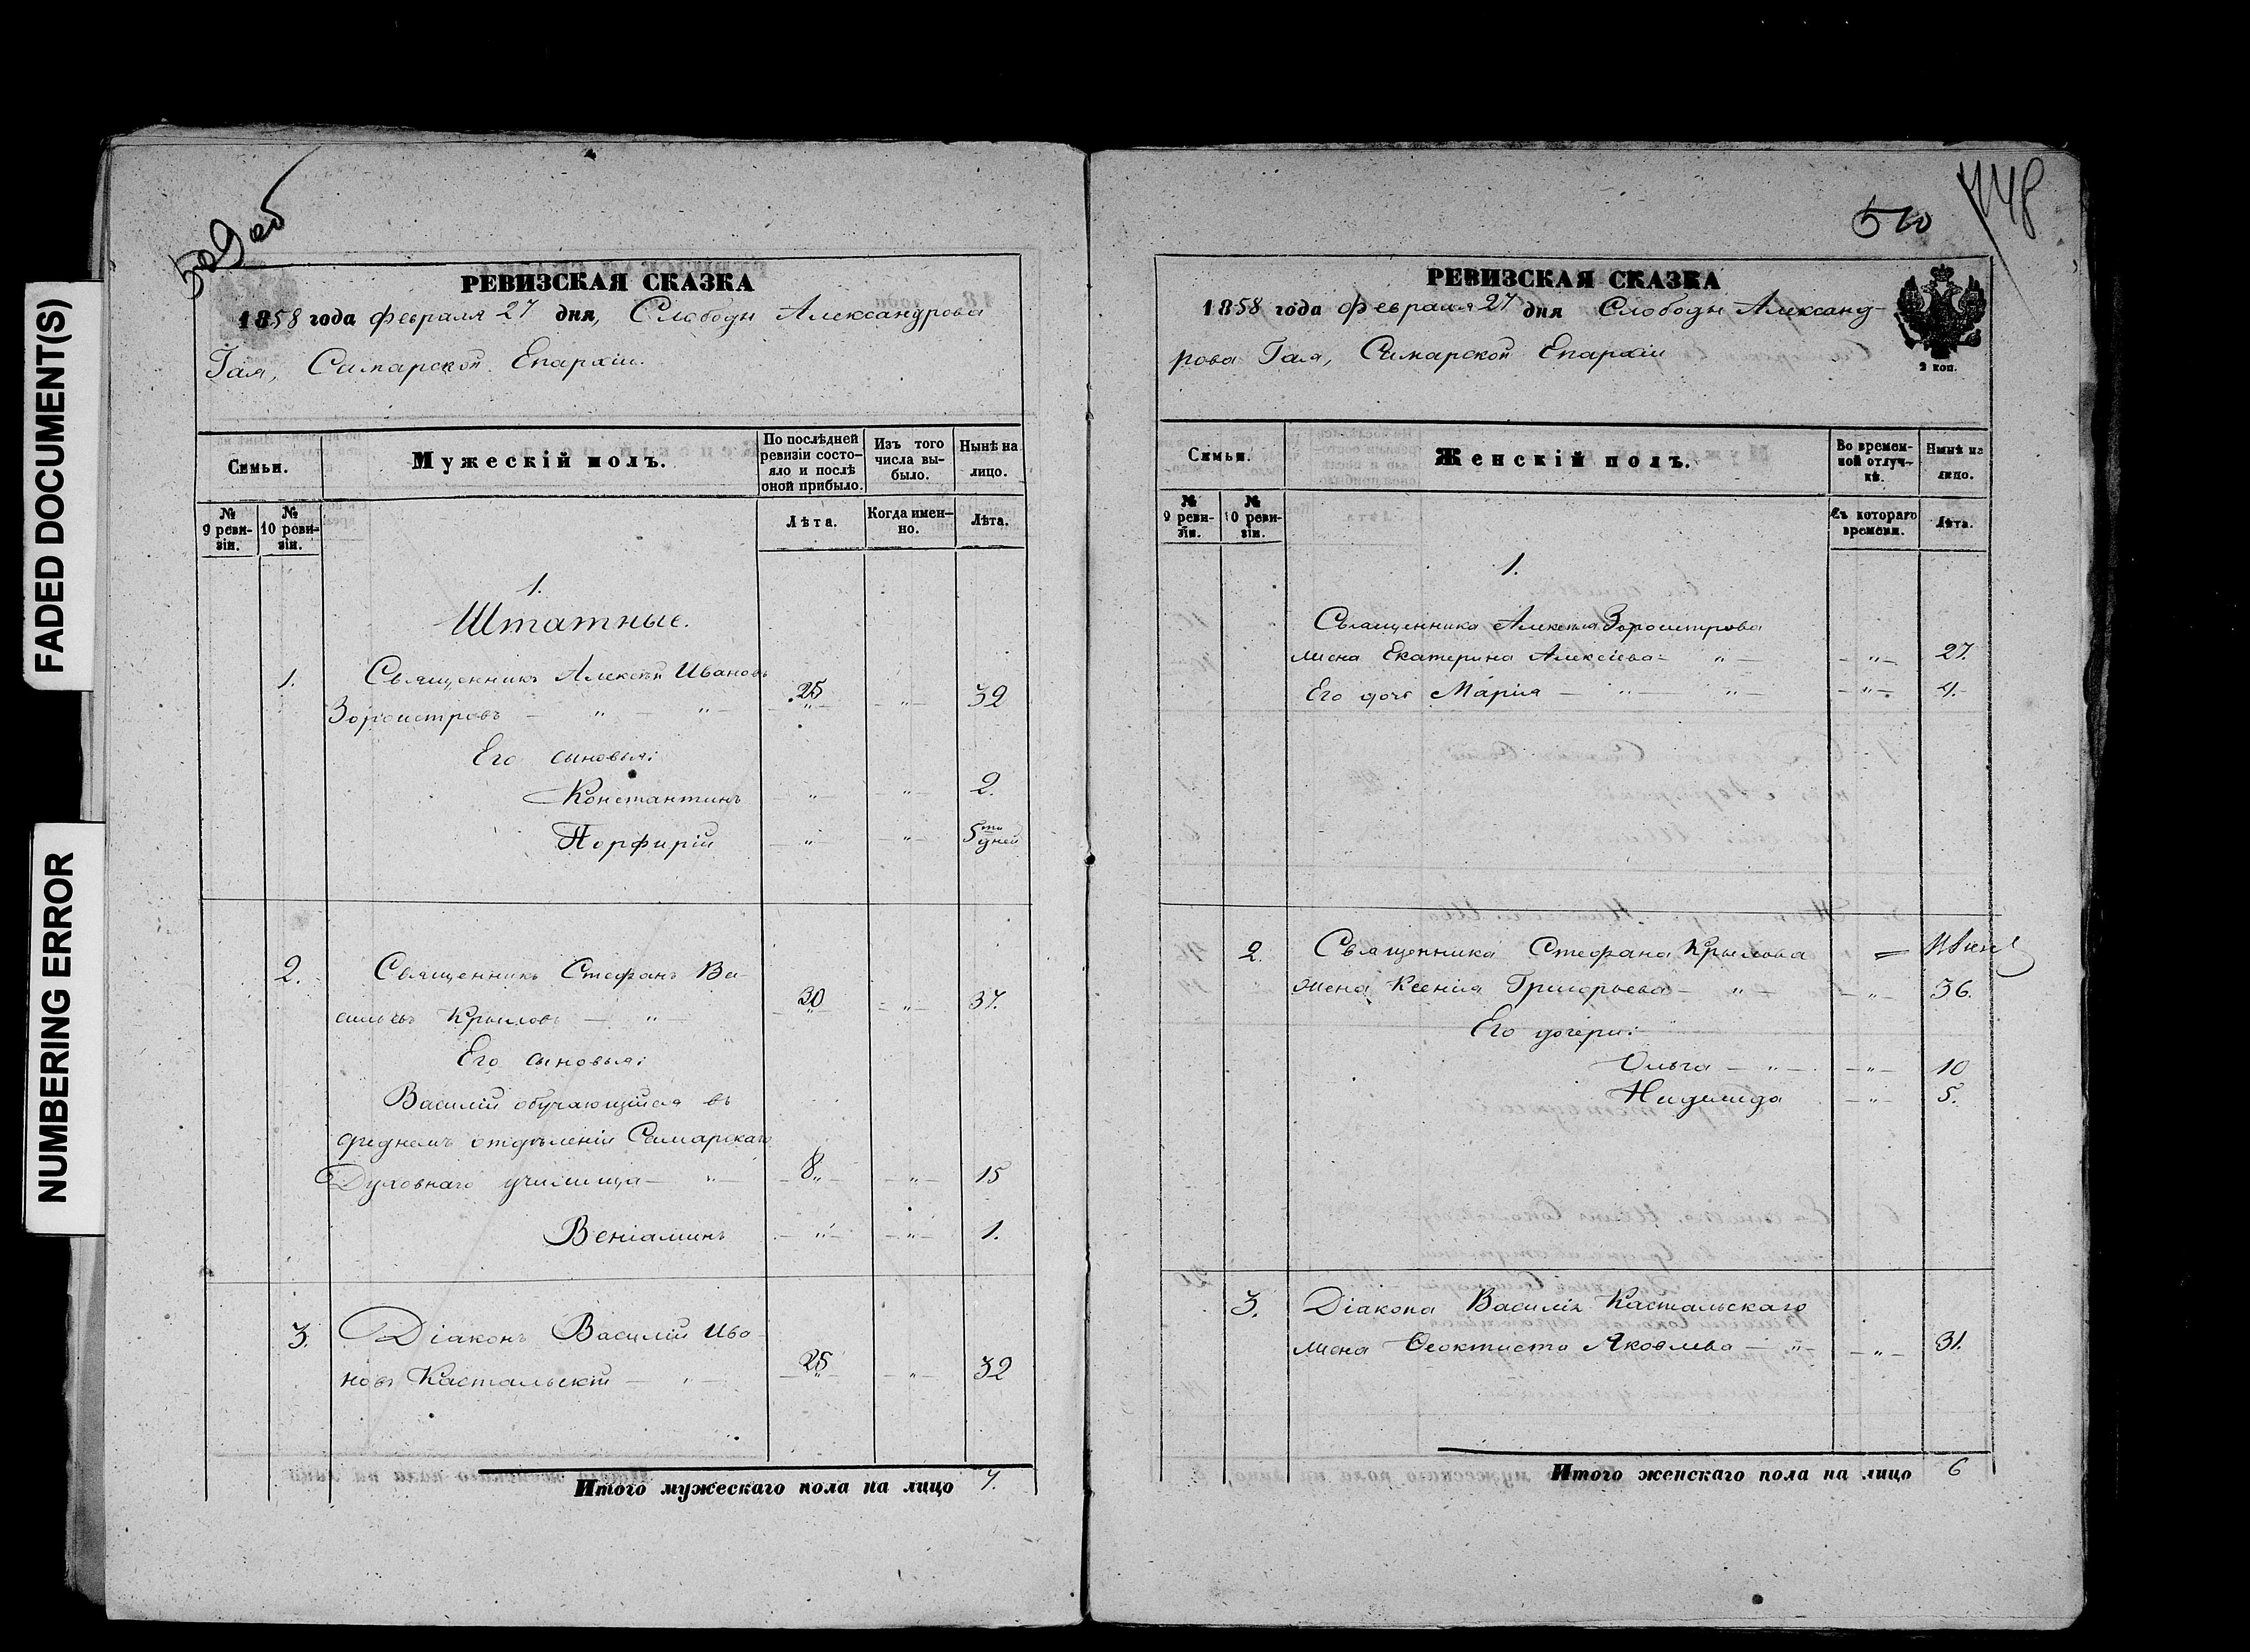 FADED DOCUMENT(S)
NUMBERING ERROR
509 об
РЕВИЗСКАЯ СКАЗКА
1858 года февраля 27 дня, Слободы Александрова
Гая, Самарской Епархіи.
Симьи.
Мужескій полъ.
По послѣдней ревизіи состояло и послѣ оной прибыло.
Изъ того числа выбыло.
Нынѣ на лицо.
№ 9 ревизіи.
№ 10 ревизіи.
Лѣта.
Когда именно.
Лѣта.
1.
Штатные.
1. Священникъ Алексѣй Ивановъ
Зороастровъ — " — " — 25 — " — 32
Его сыновья:
Константинъ — " — — " — 2.
Порфирій — " — — " — 5ти дней
2. Священникъ Стефанъ Ва-
сильевъ Крыловъ — " — 30 — " — 37.
Его сыновья:
Василій обучающійся въ
среднемъ отдѣленіи Самарскаго
Духовнаго училища — " — 8 — " — 15
Веніаминъ — " — — " — 1.
3. Діаконъ Василій Ива-
новъ Кастальскій — " — 25 — " — 32
Итого мужескаго пола на лицо 7.
510
448
РЕВИЗСКАЯ СКАЗКА
1858 года февраля 27 дня Слободы Александ-
рова Гая, Самарской Епархіи
2 коп.
Симьи.
Женскій полъ.
Во временной отлучкѣ.
Нынѣ на лицо.
№ 9 ревизіи.
№ 10 ревизіи.
Съ котораго времени.
Лѣта.
1.
Священника Алексѣя Зороастрова
жена Екатерина Алексіева — " — — " — 27.
Его дочь Марія — " — " — — " — 4.
2. Священника Стефана Крылова
жена Ксенія Григорьева — " — — " — 36.
Его дочери:
Ольга — " — — " — 10
Надежда — " — 5.
3. Діакона Василія Кастальскаго
жена Ѳеоктиста Яковлева — " — — " — 31.
Итого женскаго пола на лицо 6